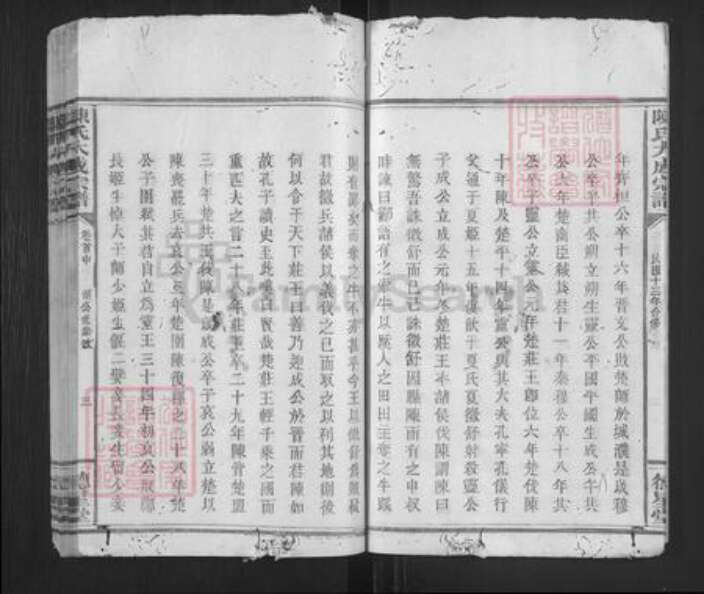 陳氏大成宗譜
民國十三年合修
年齊桓公卒十六年晉文公敗楚師於城濮是歲穆
公卒子共公朔立朔生靈公平國平國生成公午共
公六年楚商臣弒其君十一年秦穆公卒十八年共
公卒子靈公立靈公元年楚莊王卽位六年楚伐陳
十年陳及楚平十四年靈公與其大夫孔寧孔儀行
父通于夏姬十五年復飲于夏氏夏徵舒射殺靈公
子成公立成公元年楚莊王率諸侯伐陳謂陳曰
無驚吾誅徵舒而已已誅徵舒因縣陳而有之申叔
時諫曰鄙語有之牽牛以蹊人之田田主奪之牛蹊
則有罪矣而奪之牛不亦甚乎今王以徵舒爲賊弒
君故徵兵諸侯以義伐之已而取之以利其地則後
何以令于天下莊王曰善乃迎成公於晉而君陳如
故孔子讀史至此曰賢哉楚莊王輕千乘之國而
重匹夫之言二十八年莊王卒二十九年陳背楚盟
三十年楚共王伐陳是歲成公卒子哀公弱立楚以
陳喪罷兵去哀公三年楚圍陳復釋之二十八年楚
公子圍弒其君自立爲靈王三十四年初哀公娶鄭
長姬生悼太子師少姬生偃二嬖妾長妾生留少妾
陳氏大成宗譜
卷首中
三